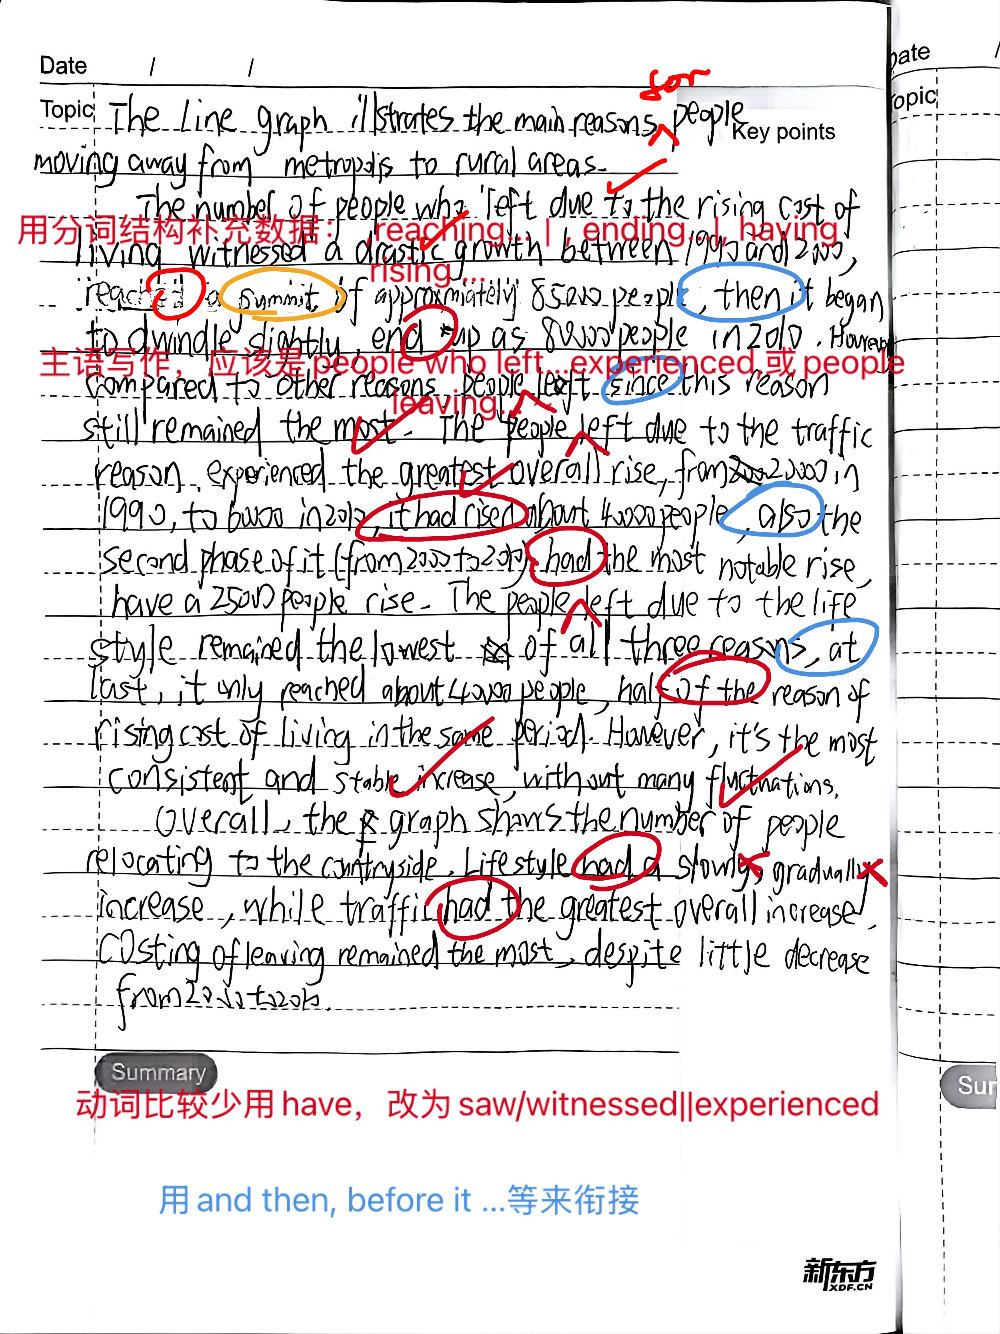 Date / /
for
Topic The Line graph illstrates the main reasons people
Key points
moving away from metropolis to rural areas.
The number of people who left due to the rising cost of
用分词结构补充数据： reaching... | , ending...|, having
living witnessed a drastic growth between 1990 and 2000,
rising ...
reached a summit of approximately 85000 people, then it began
to dwindle slightly, end up as 80000 people in 2010. However
主语写作，应该是 people who left...experienced 或 people
compared to other reasons, people left since this reason
leaving...
still remained the most. The people left due to the traffic
reason experienced the greatest overall rise, from 20000 in
1990, to 60000 in 2010, it had rised about 40000 people, also the
second phase of it (from 2000 to 2010) had the most notable rise,
have a 25000 people rise. The people left due to the life
style remained the lowest of all three reasons, at
last, it only reached about 40000 people, half of the reason of
rising cost of living in the same period. However, it's the most
consistent and stable increase, without many fluctuations.
Overall, the graph shows the number of people
relocating to the countryside. Lifestyle had a slowly, gradually
increase, while traffic had the greatest overall increase,
Costing of leaving remained the most, despite little decrease
from 2000 to 2010.
Summary
动词比较少用 have，改为 saw/witnessed||experienced
用 and then, before it ...等来衔接
新东方
XDF.CN
Date /
Topic
Sum